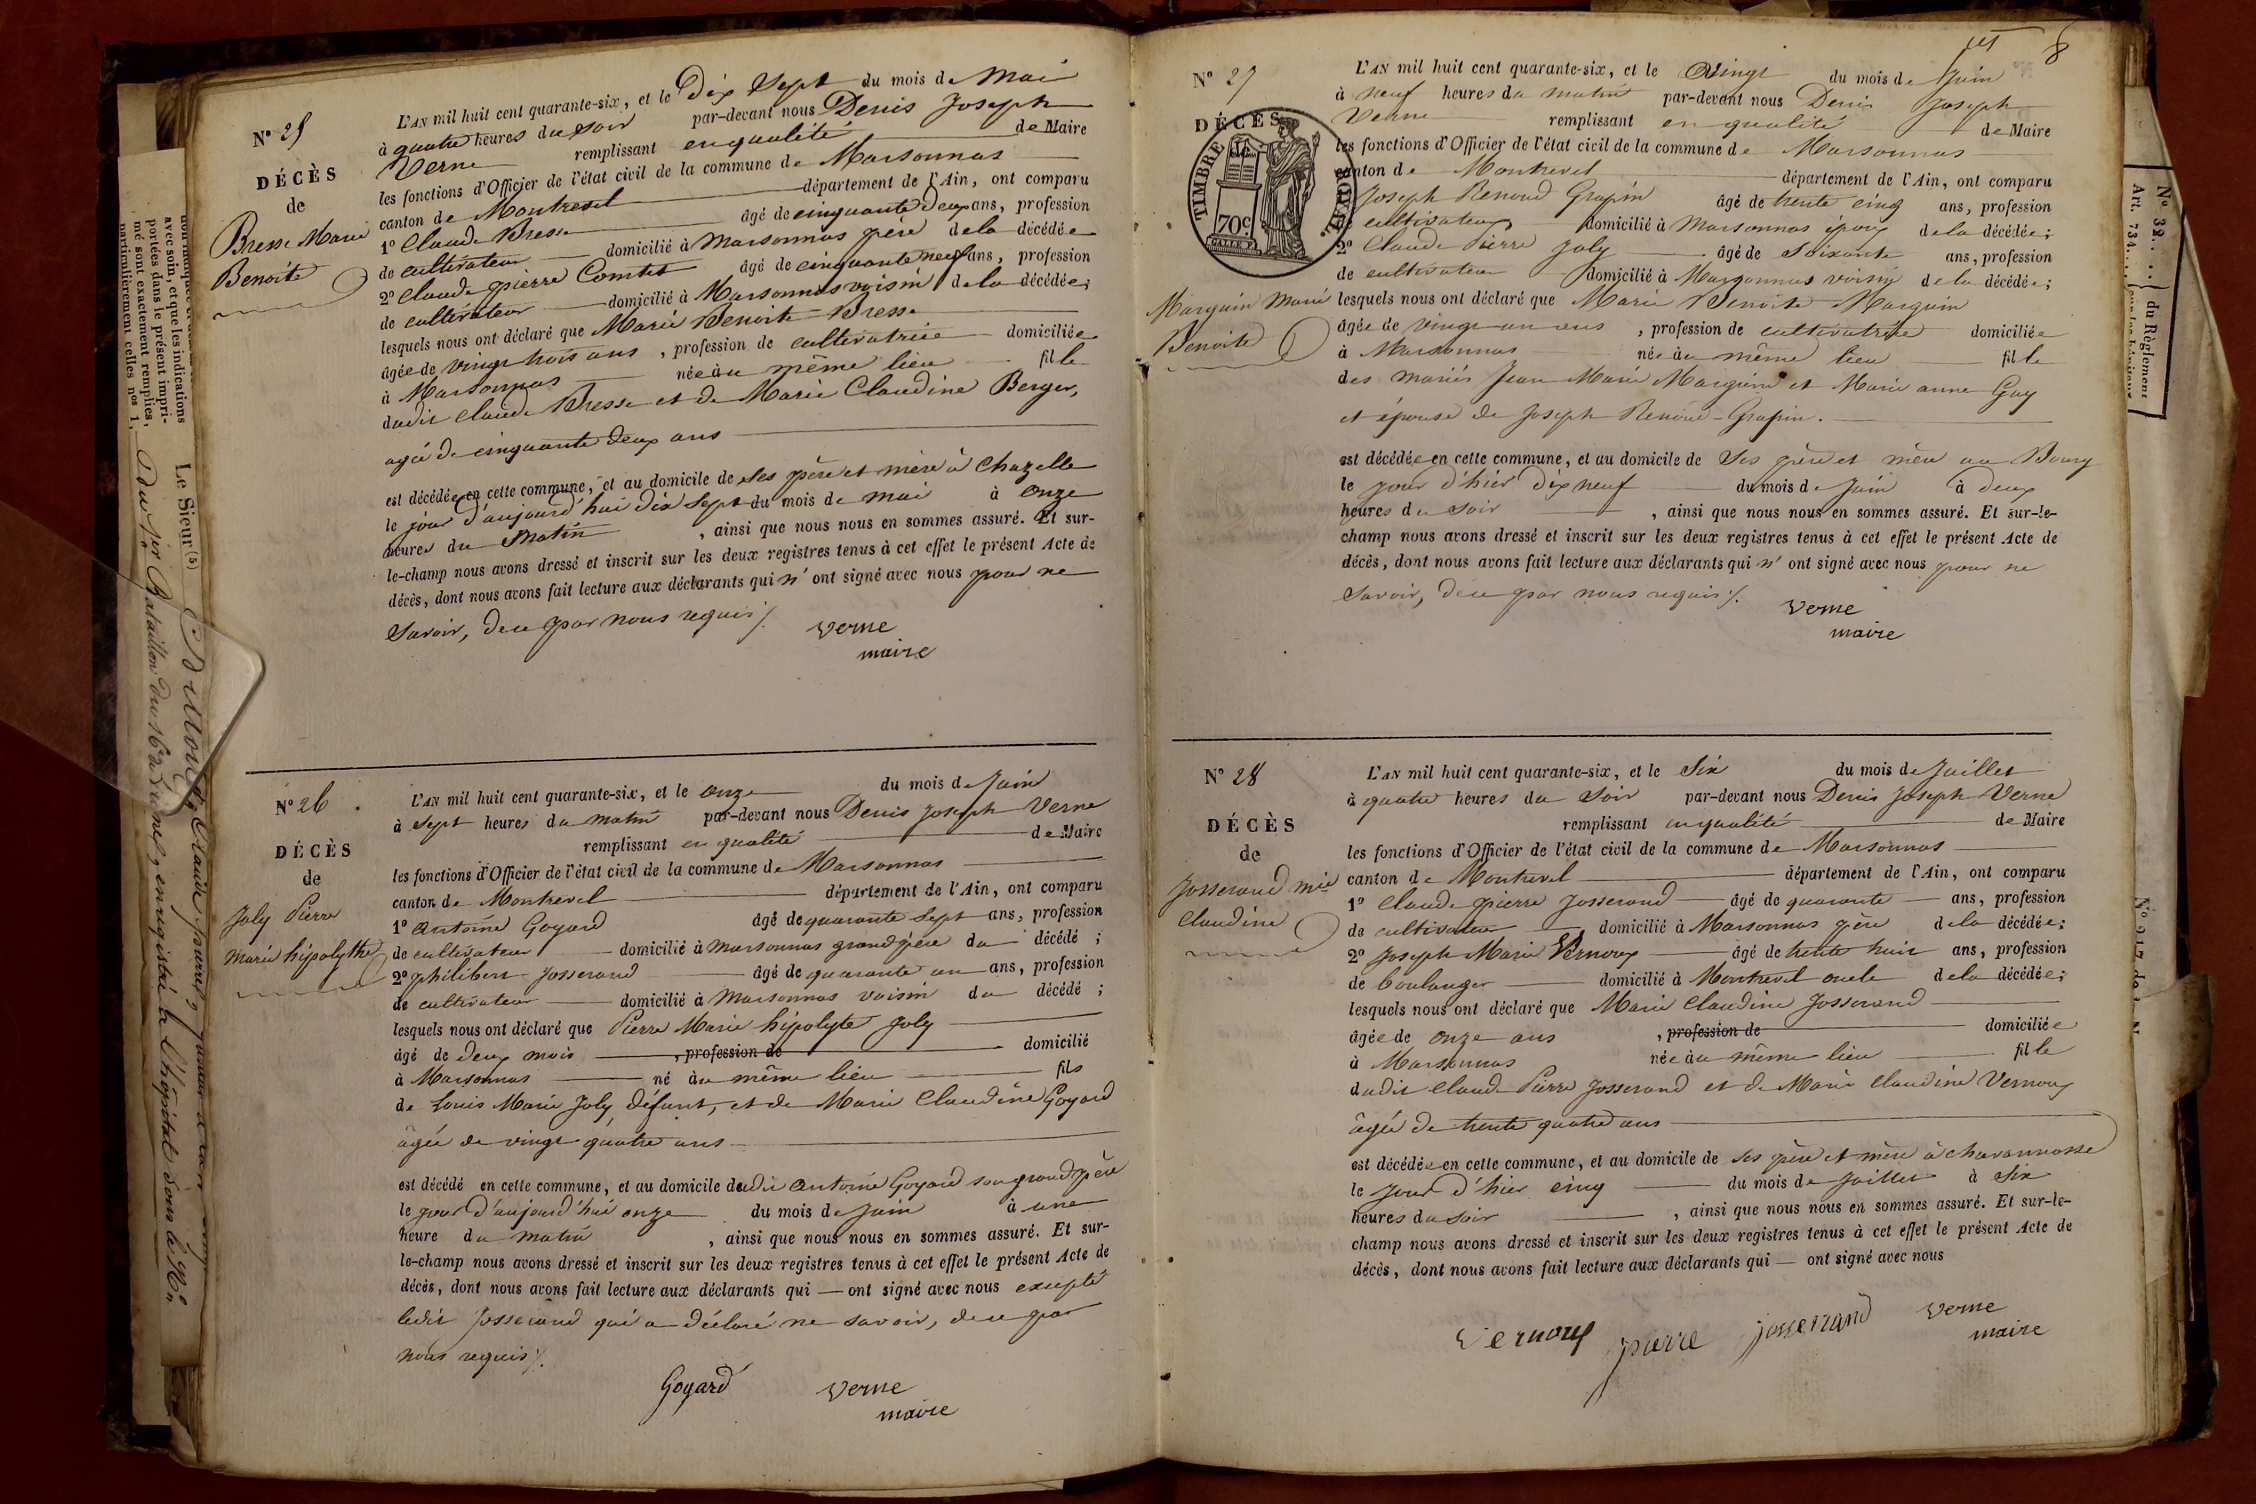 N° 25
DÉCÈS
de
Bresse Marie
Benoite
L'AN mil huit cent quarante-six, et le Dix Sept du mois de Mai
à quatre heures du soir par-devant nous Denis Joseph
Verne remplissant en qualité de Maire
les fonctions d'Officier de l'état civil de la commune de Marsonnas
canton de Montrevel département de l'Ain, ont comparu
1° Claude Bresse âgé de cinquante deux ans, profession
de cultivateur domicilié à Marsonnas père de la décédée
2° Claude pierre Comtet âgé de cinquante neuf ans, profession
de cultivateur domicilié à Marsonnas voisin de la décédée;
lesquels nous ont déclaré que Marie Benoite Bresse
âgée de vingt trois ans, profession de cultivatrice domiciliée
à Marsonnas née au même lieu fille
dudit Claude Bresse et de Marie Claudine Berger,
agée de cinquante deux ans
est décédée en cette commune, et au domicile de ses père et mère à Chazelle
le jour d'aujourd'hui dix sept du mois de mai à onze
heures du matin, ainsi que nous nous en sommes assuré. Et sur-
le-champ nous avons dressé et inscrit sur les deux registres tenus à cet effet le présent Acte de
décès, dont nous avons fait lecture aux déclarants qui n'ont signé avec nous pour ne
Savoir, de ce par nous requis ⁒.
Verne
maire
N° 26
DÉCÈS
de
Joly Pierre
Marie hipolythe
L'AN mil huit cent quarante-six, et le onze du mois de Juin
à sept heures du matin par-devant nous Denis Joseph Verne
remplissant en qualité de Maire
les fonctions d'Officier de l'état civil de la commune de Marsonnas
canton de Montrevel département de l'Ain, ont comparu
1° antoine Goyard âgé de quarante sept ans, profession
de cultivateur domicilié à Marsonnas grand père du décédé;
2° philibert Josserand âgé de quarante un ans, profession
de cultivateur domicilié à Marsonnas voisin du décédé;
lesquels nous ont déclaré que Pierre Marie hipolyte Joly
âgé de deux mois, profession de domicilié
à Marsonnas né au même lieu fils
de Louis Marie Joly défunt, et de Marie Claudine Goyard
âgée de vingt quatre ans
est décédé en cette commune, et au domicile dudit antoine Goyard son grand père
le jour d'aujourd'hui onze du mois de Juin à une
heure du matin, ainsi que nous nous en sommes assuré. Et sur-
le-champ nous avons dressé et inscrit sur les deux registres tenus à cet effet le présent Acte de
décès, dont nous avons fait lecture aux déclarants qui — ont signé avec nous excepté
ledit Josserand qui a déclaré ne savoir, de ce par
nous requis ⁒.
Goyard Verne
maire
8
N° 27
DÉCÈS
TIMBRE ROYAL
70c
Marguin Marie
Benoite
L'AN mil huit cent quarante-six, et le Vingt du mois de Juin
à neuf heures du matin par-devant nous Denis Joseph
Verne remplissant en qualité de Maire
les fonctions d'Officier de l'état civil de la commune de Marsonnas
canton de Montrevel département de l'Ain, ont comparu
Joseph Renoud Grapin âgé de trente cinq ans, profession
cultivateur domicilié à Marsonnas époux de la décédée;
2° Claude Pierre Joly âgé de Soixante ans, profession
de cultivateur domicilié à Marsonnas voisin de la décédée;
lesquels nous ont déclaré que Marie Benoite Marguin
âgée de vingt un ans, profession de cultivatrice domiciliée
à Marsonnas née au même lieu fille
des mariés Jean Marie Marguin et Marie anne Guy
et épouse de Joseph Renoud-Grapin.
est décédée en cette commune, et au domicile de Ses père et mère au Bourg
le jour d'hier dix neuf du mois de Juin à deux
heures du soir, ainsi que nous nous en sommes assuré. Et sur-le-
champ nous avons dressé et inscrit sur les deux registres tenus à cet effet le présent Acte de
décès, dont nous avons fait lecture aux déclarants qui n'ont signé avec nous pour ne
Savoir, de ce par nous requis ⁒.
Verne
maire
N° 28
DÉCÈS
de
Josserand Mie
Claudine
L'AN mil huit cent quarante-six, et le Six du mois de Juillet
à quatre heures du Soir par-devant nous Denis Joseph Verne
remplissant en qualité de Maire
les fonctions d'Officier de l'état civil de la commune de Marsonnas
canton de Montrevel département de l'Ain, ont comparu
1° Claude pierre Josserand âgé de quarante ans, profession
de cultivateur domicilié à Marsonnas père de la décédée;
2° Joseph Marie Vernoux âgé de trente huit ans, profession
de boulanger domicilié à Montrevel oncle de la décédée;
lesquels nous ont déclaré que Marie Claudine Josserand
âgée de onze ans, profession de domiciliée
à Marsonnas née au même lieu fille
dudit Claude Pierre Josserand et de Marie Claudine Vernoux
âgée de trente quatre ans
est décédée en cette commune, et au domicile de ses père et mère à chavannosse
le jour d'hier cinq du mois de Juillet à Six
heures du soir, ainsi que nous nous en sommes assuré. Et sur-le-
champ nous avons dressé et inscrit sur les deux registres tenus à cet effet le présent Acte de
décès, dont nous avons fait lecture aux déclarants qui — ont signé avec nous
Vernoux pierre josserrand Verne
maire
avec soin, et que les indications
portées dans le présent impri-
mé sont exactement remplies,
particulièrement celles nos 1,
Le Sieur (5)
N° 32
Art. 734
du Règlement